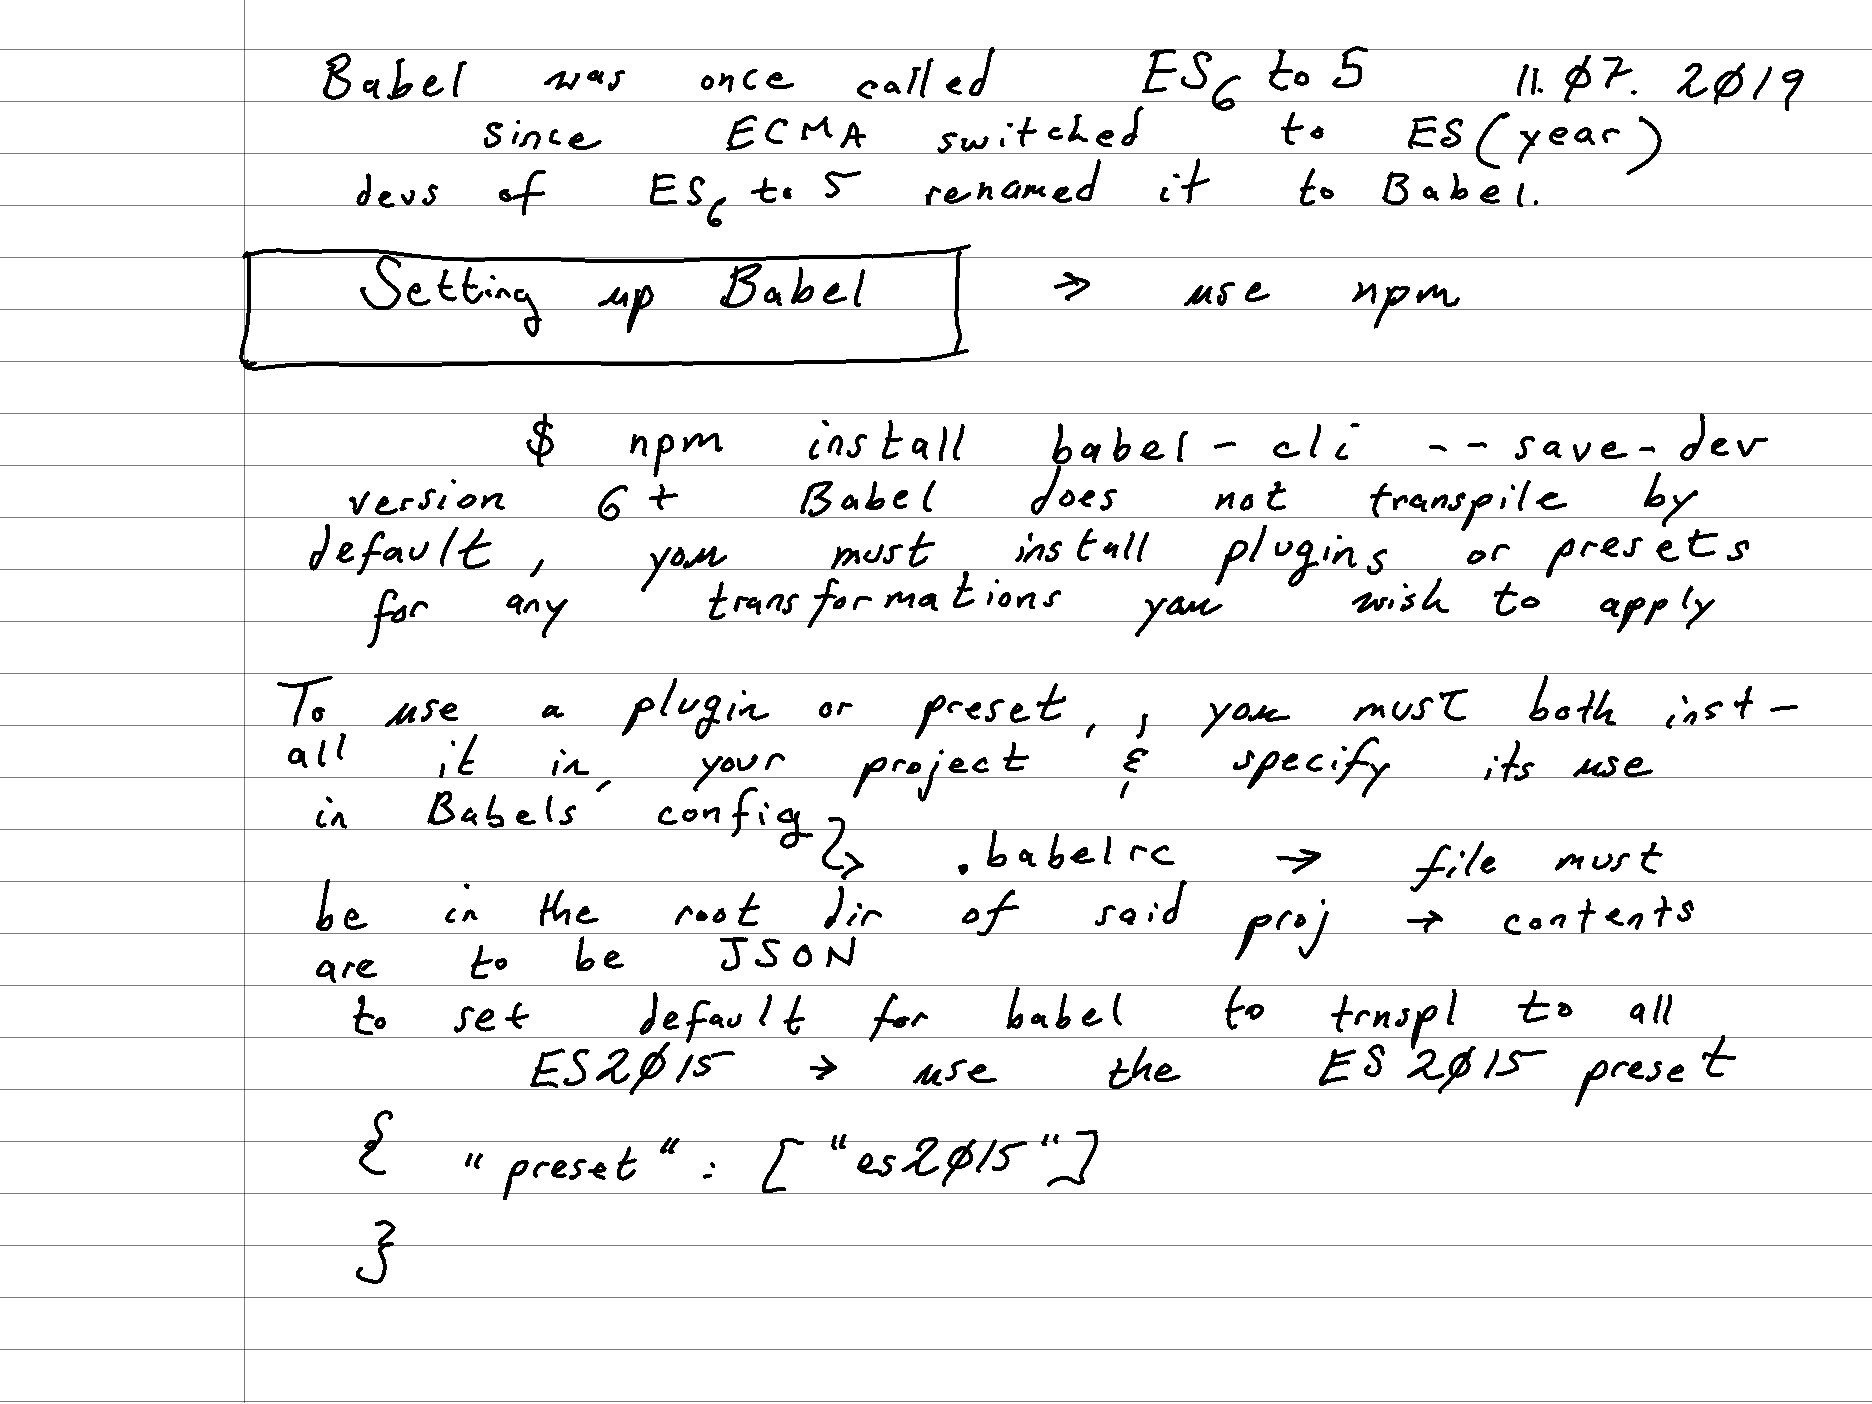 Babel was once called ES6 to 5 11.07.2019
since ECMA switched to ES(year)
devs of ES6 to 5 renamed it to Babel.
Setting up Babel → use npm
$ npm install babel-cli --save-dev
version 6+ Babel does not transpile by
default, you must install plugins or presets
for any transformations you wish to apply
To use a plugin or preset, , you must both inst-
all it in your project & specify its use
in Babels' config
↳ .babelrc → file must
be in the root dir of said proj → contents
are to be JSON
to set default for babel to trnspl to all
ES2015 → use the ES2015 preset
{ "preset": ["es2015"]
}